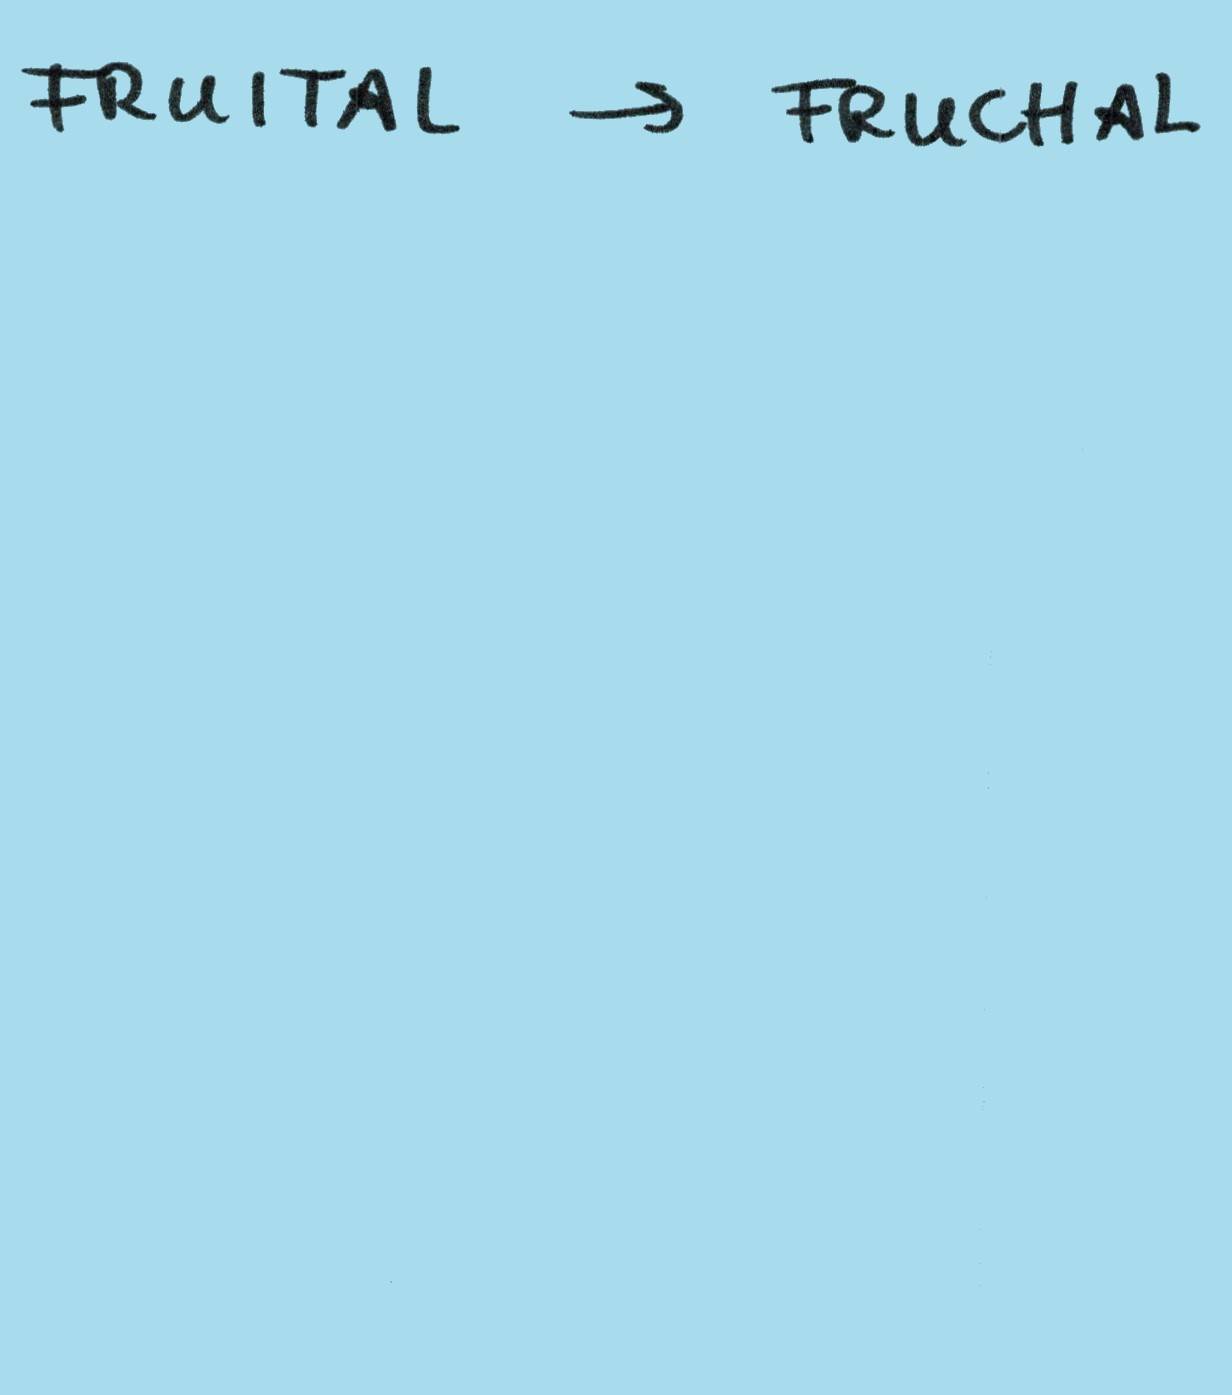 FRUITAL → FRUCHAL